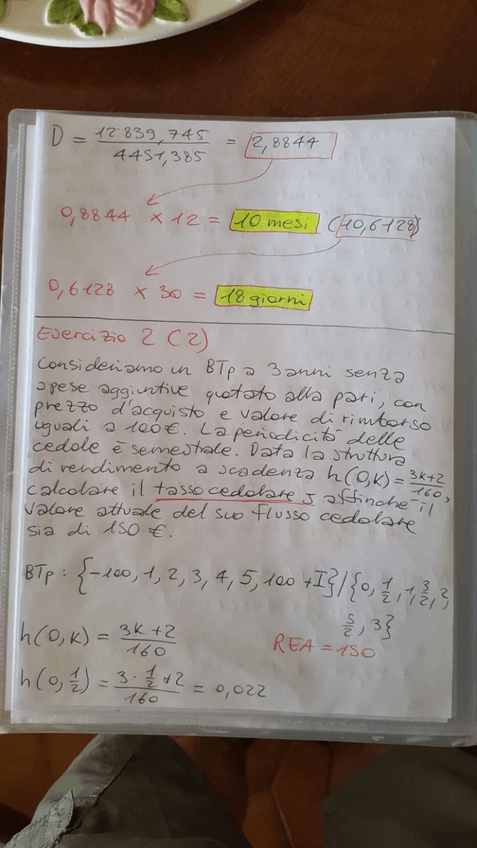 D = 12839,745 / 4451,385 = 2,8844
0,8844 x 12 = 10 mesi (10,6128)
0,6128 x 30 = 18 giorni
Esercizio 2 (2)
Consideriamo un BTp a 3 anni senza
spese aggiuntive quotato alla pari, con
prezzo d'acquisto e valore di rimborso
uguali a 100€. La periodicità delle
cedole è semestrale. Data la struttura
di rendimento a scadenza h(0,k) = 3k+2 / 160,
calcolare il tasso cedolare s affinché il
valore attuale del suo flusso cedolare
sia di 150 €.
BTp : {-100, 1, 2, 3, 4, 5, 100 + I} / {0, 1/2, 1, 3/2, 2,
5/2, 3}
h(0,k) = 3k+2 / 160
REA = 150
h(0, 1/2) = 3 · 1/2 + 2 / 160 = 0,022